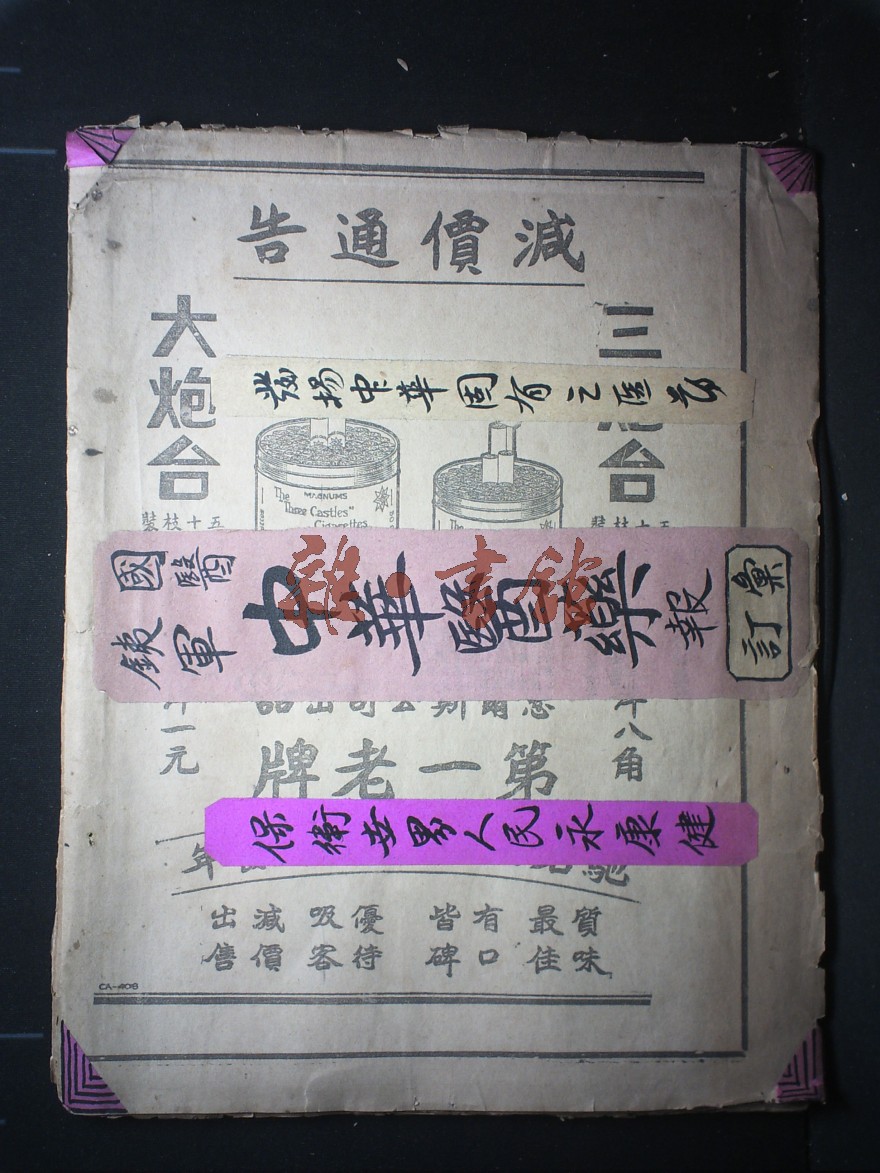 減價通告
三
台
五十枝裝
八角
大炮台
五十枝裝
一元
發揚中華固有之医
MAGNUMS
The
"Three Castles"
Cigarettes
The
國醫
銕軍
中華醫藥報
彙訂
雜·書館
第一老牌
保衛世界人民永康健
馳
年
質味最佳
有口皆碑
優待吸客
減價出售
CA-408